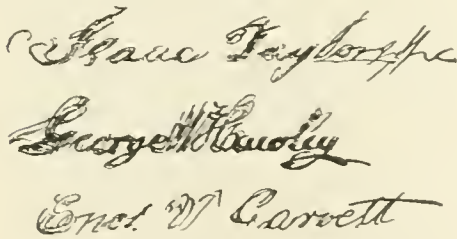 Isaac Taylor
George W Hawley
Enos W Garrett